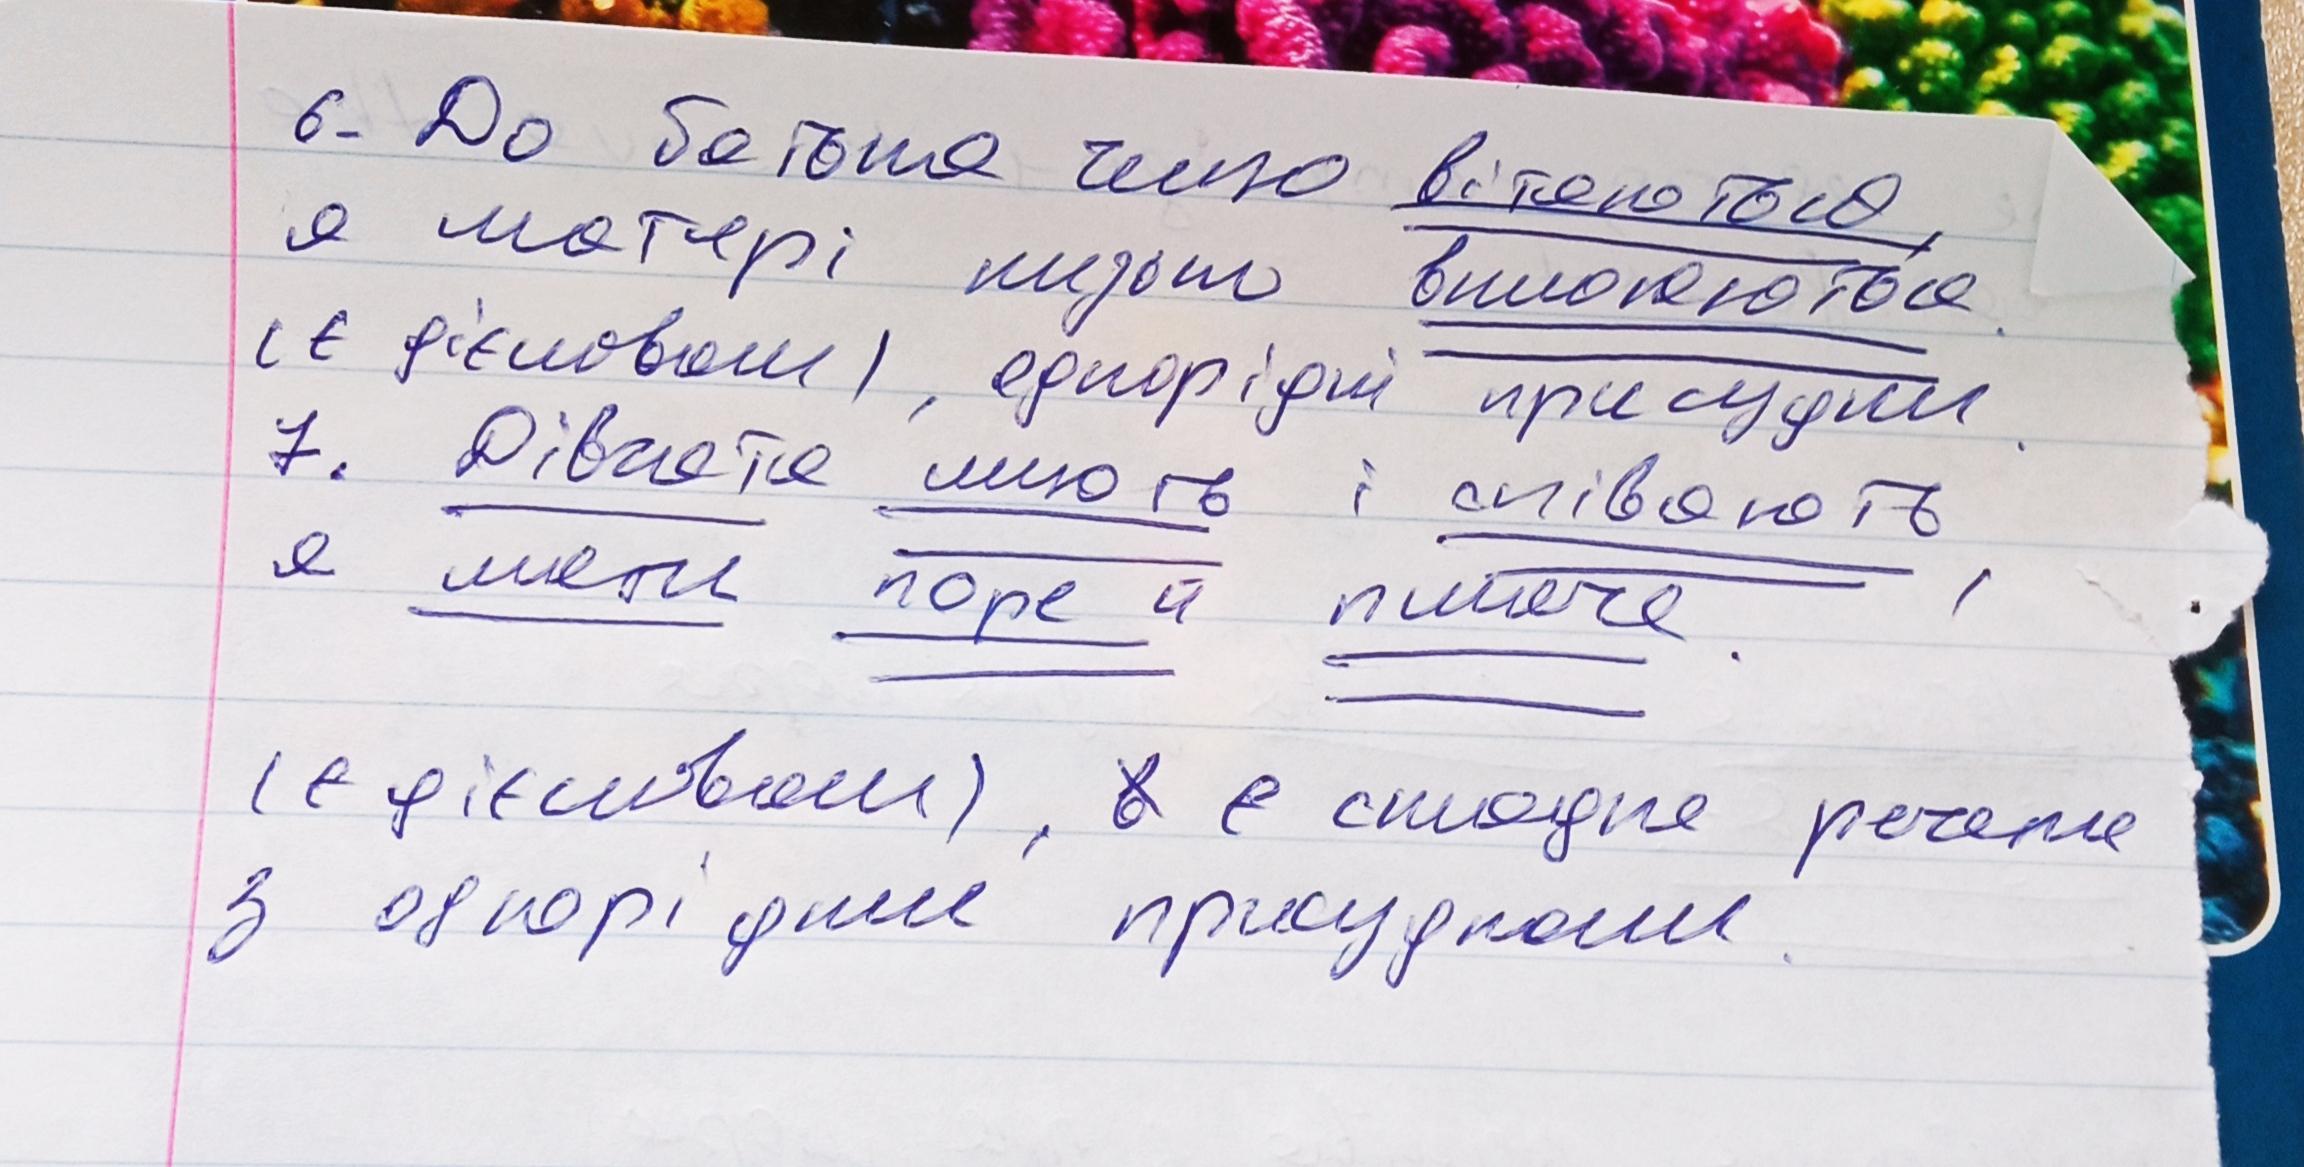 6. До батька чемно вітаються,
а матері низько вклоняються.
(є дієслова́ми), однорідні присудки.
7. Дівчата миють і співають,
а мати поре й плаче.
(є дієсловами), є складне речення
з однорідними присудками.